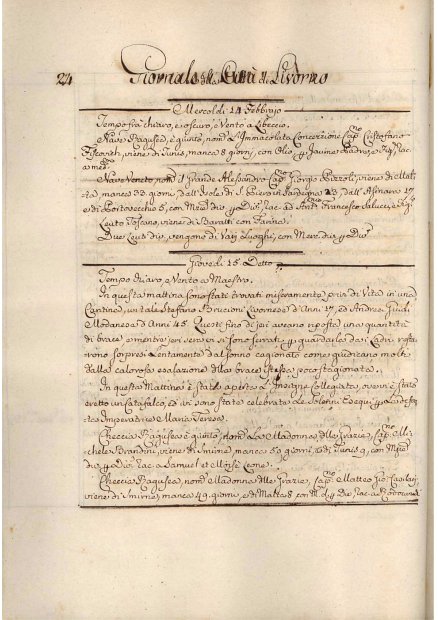 24 Giornale della Città di Livorno
Mercoledì 14 Febbrajo
Tempo fra chiaro, e oscuro, e Vento a Libeccio.
Nave Ragusea, è giunto, nom.ta L'Immacolata Concezzione Cap.o Cristofano
viene di Tunis, manca 8 giorni, con Olio, e
a me.
Nave Veneto, nom. il Grande Alesandro Cap.o Giorgio
manca 33 giorni, dall'Isole di S. Piero in Sardegna 23, dall'Asinara 17
e di Portovecchio 5, con Francesco
Leuto Toscano, viene di Baratti con Farina.
Due Leuti d.i, vengono di Varj Luoghi, con
Giovedì 15 Detto
Tempo chiaro, e Vento a Maestro.
In questa mattina sono stati trovati miseramente privi di Vita in una
Cantina, un tale Stefano Livornese d'Anni 17, ed Andrea Guidi
Modanese d'Anni 45. Questi fino di jeri aveano riposta una quantità
di brace e mentre jeri sera vi si sono serrati p guardarle dai Ladri resta-
rono sorpresi Lentamente dal sonno cagionato come giudicano molti
dalla calorosa esalazione della brace stessa
In questa Mattina è stata aperta L'Insigne Collegiata, ov'era stato
eretto un Catafalco, ed ivi sono state celebrate Le Solenni Esequi p La Defon-
ta Imperatrice Maria Teresa.
Checcia Ragusea è giunto, nom.ta La Madonna delle Grazie, Cap.o Mi-
chele Brandini, viene di Smirne, manca 59 giorni, e di Tunis 9, con
rac. a Samuel et Moisè Leone.
Checcia Ragusea, nom.ta Madonna delle Grazie, Cap.o Matteo Gio.
viene di Smirne, manca 49 giorni, e di Malta 8 con